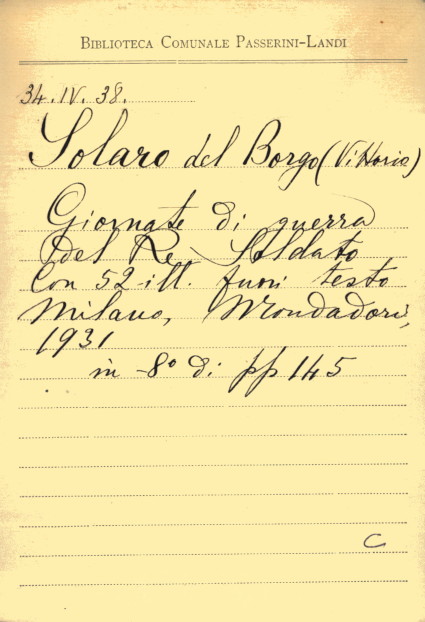 BIBLIOTECA COMUNALE PASSERINI-LANDI
34.IV.38.
Solaro del Borgo (Vittorio)
Giornate di guerra
del Re Soldato
Con 52 ill. fuori testo
Milano, Mondadori,
1931
in -8º di pp 145
C